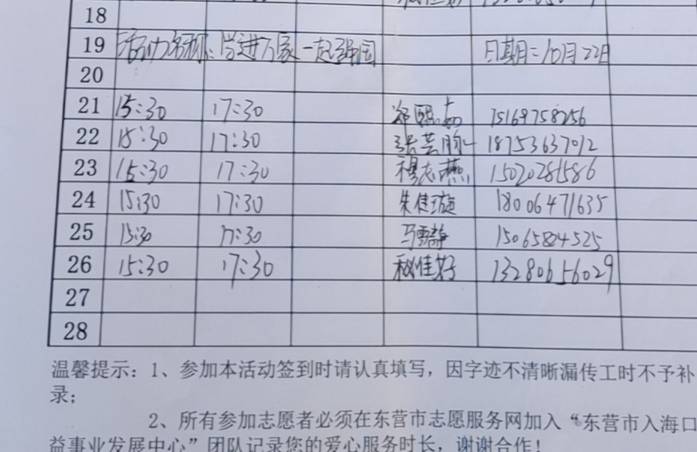 18
19 活动名称：学进万家 一起强国 日期=10月22日
20
21 15:30 17:30 15169758256
22 15:30 17:30 18753637012
23 15:30 17:30 15020281586
24 15:30 17:30 朱佳璇 18006471635
25 15:30 17:30 马雪静 15065824525
26 15:30 17:30 13280656029
27
28
温馨提示：1、参加本活动签到时请认真填写，因字迹不清晰漏传工时不予补
录；
2、所有参加志愿者必须在东营市志愿服务网加入“东营市入海口
益事业发展中心”团队记录您的爱心服务时长，谢谢合作！